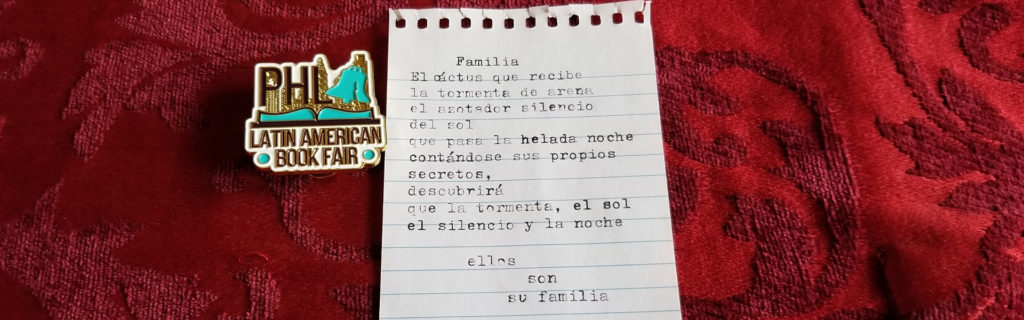 PHL
LATIN AMERICAN
BOOK FAIR
Familia
El cáctus que recibe
la tormenta de arena
el azotador silencio
del sol
que pasa la helada noche
contándose sus propios
secretos,
descubrirá
que la tormenta, el sol
el silencio y la noche
ellos
son
su familia